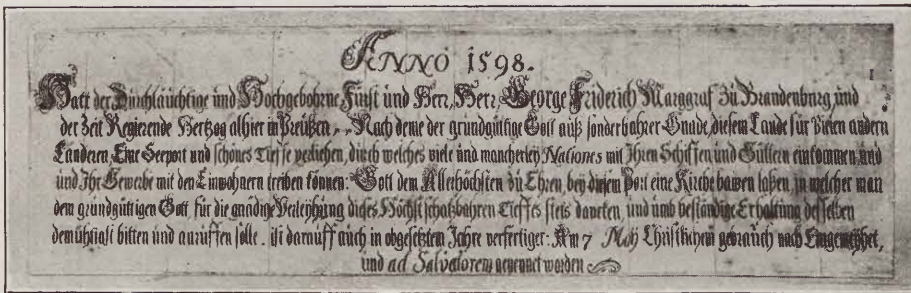 ANNO 1598.
Hatt der Durchläuchtige und Hochgebohrne Fürst und Herr, Herr George Friderich Marggraf Zu Brandenburg, und
der Zeit Regierende Hertzog alhier in Preüßen, Nach deme der grundgüttige Gott auß sonderbahrer Gnade, diesem Lande für Vielen andern
Länderen, Eine Seeport und schönes Tieffe verliehen, durch welches viele und mancherley Nationes mit Ihren Schiffen und Güttern einkommen und
und Ihr Gewerbe mit den Einwohnern treiben können: Gott dem Allerhöchsten zu Ehren, bey diesem Port eine Kirche bawen laßen, in welcher man
dem grundgüttigen Gott für die gnädige Verleyhung dieses Höchst schatzbahren Tieffes stets dancken, und umb beständige Erhaltung desselben
demühtigst bitten und anruffen solle. ist darauff auch in obgesetztem Jahre verfertiget: Am 7 Maij Christlichem gebrauch nach Eingeweyhet,
und ad Salvatorem genennet worden